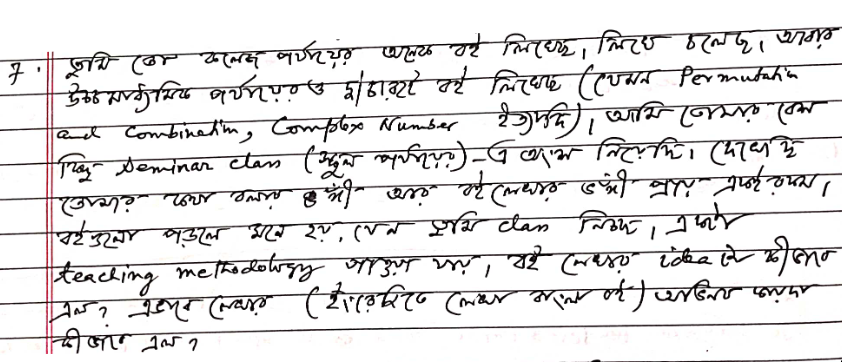 7. তুমি তো কলেজ পর্যায়ের অনেক বই লিখেছ, লিখে চলেছ, আবার
উচ্চমাধ্যমিক পর্যায়েরও দু চারটে বই লিখেছ (যেমন Permutation
and Combination, Complex Number ইত্যাদি), আমি তোমার বেশ
কিছু Seminar class (স্কুল পর্যায়ে)-এ অংশ নিয়েছি। দেখেছি
তোমার কথা বলার ভঙ্গী আর বই লেখার ভঙ্গী প্রায় একই রকম,
বইগুলো পড়লে মনে হয়, যেন তুমি class নিচ্ছ, একটা
teaching methodology পাওয়া যায়, বই লেখার idea টা কীভাবে
এল? এভাবে লেখার (ইংরেজিতে লেখা বাংলা বই) অভিনব ভাবনা
কী ভাবে এল?